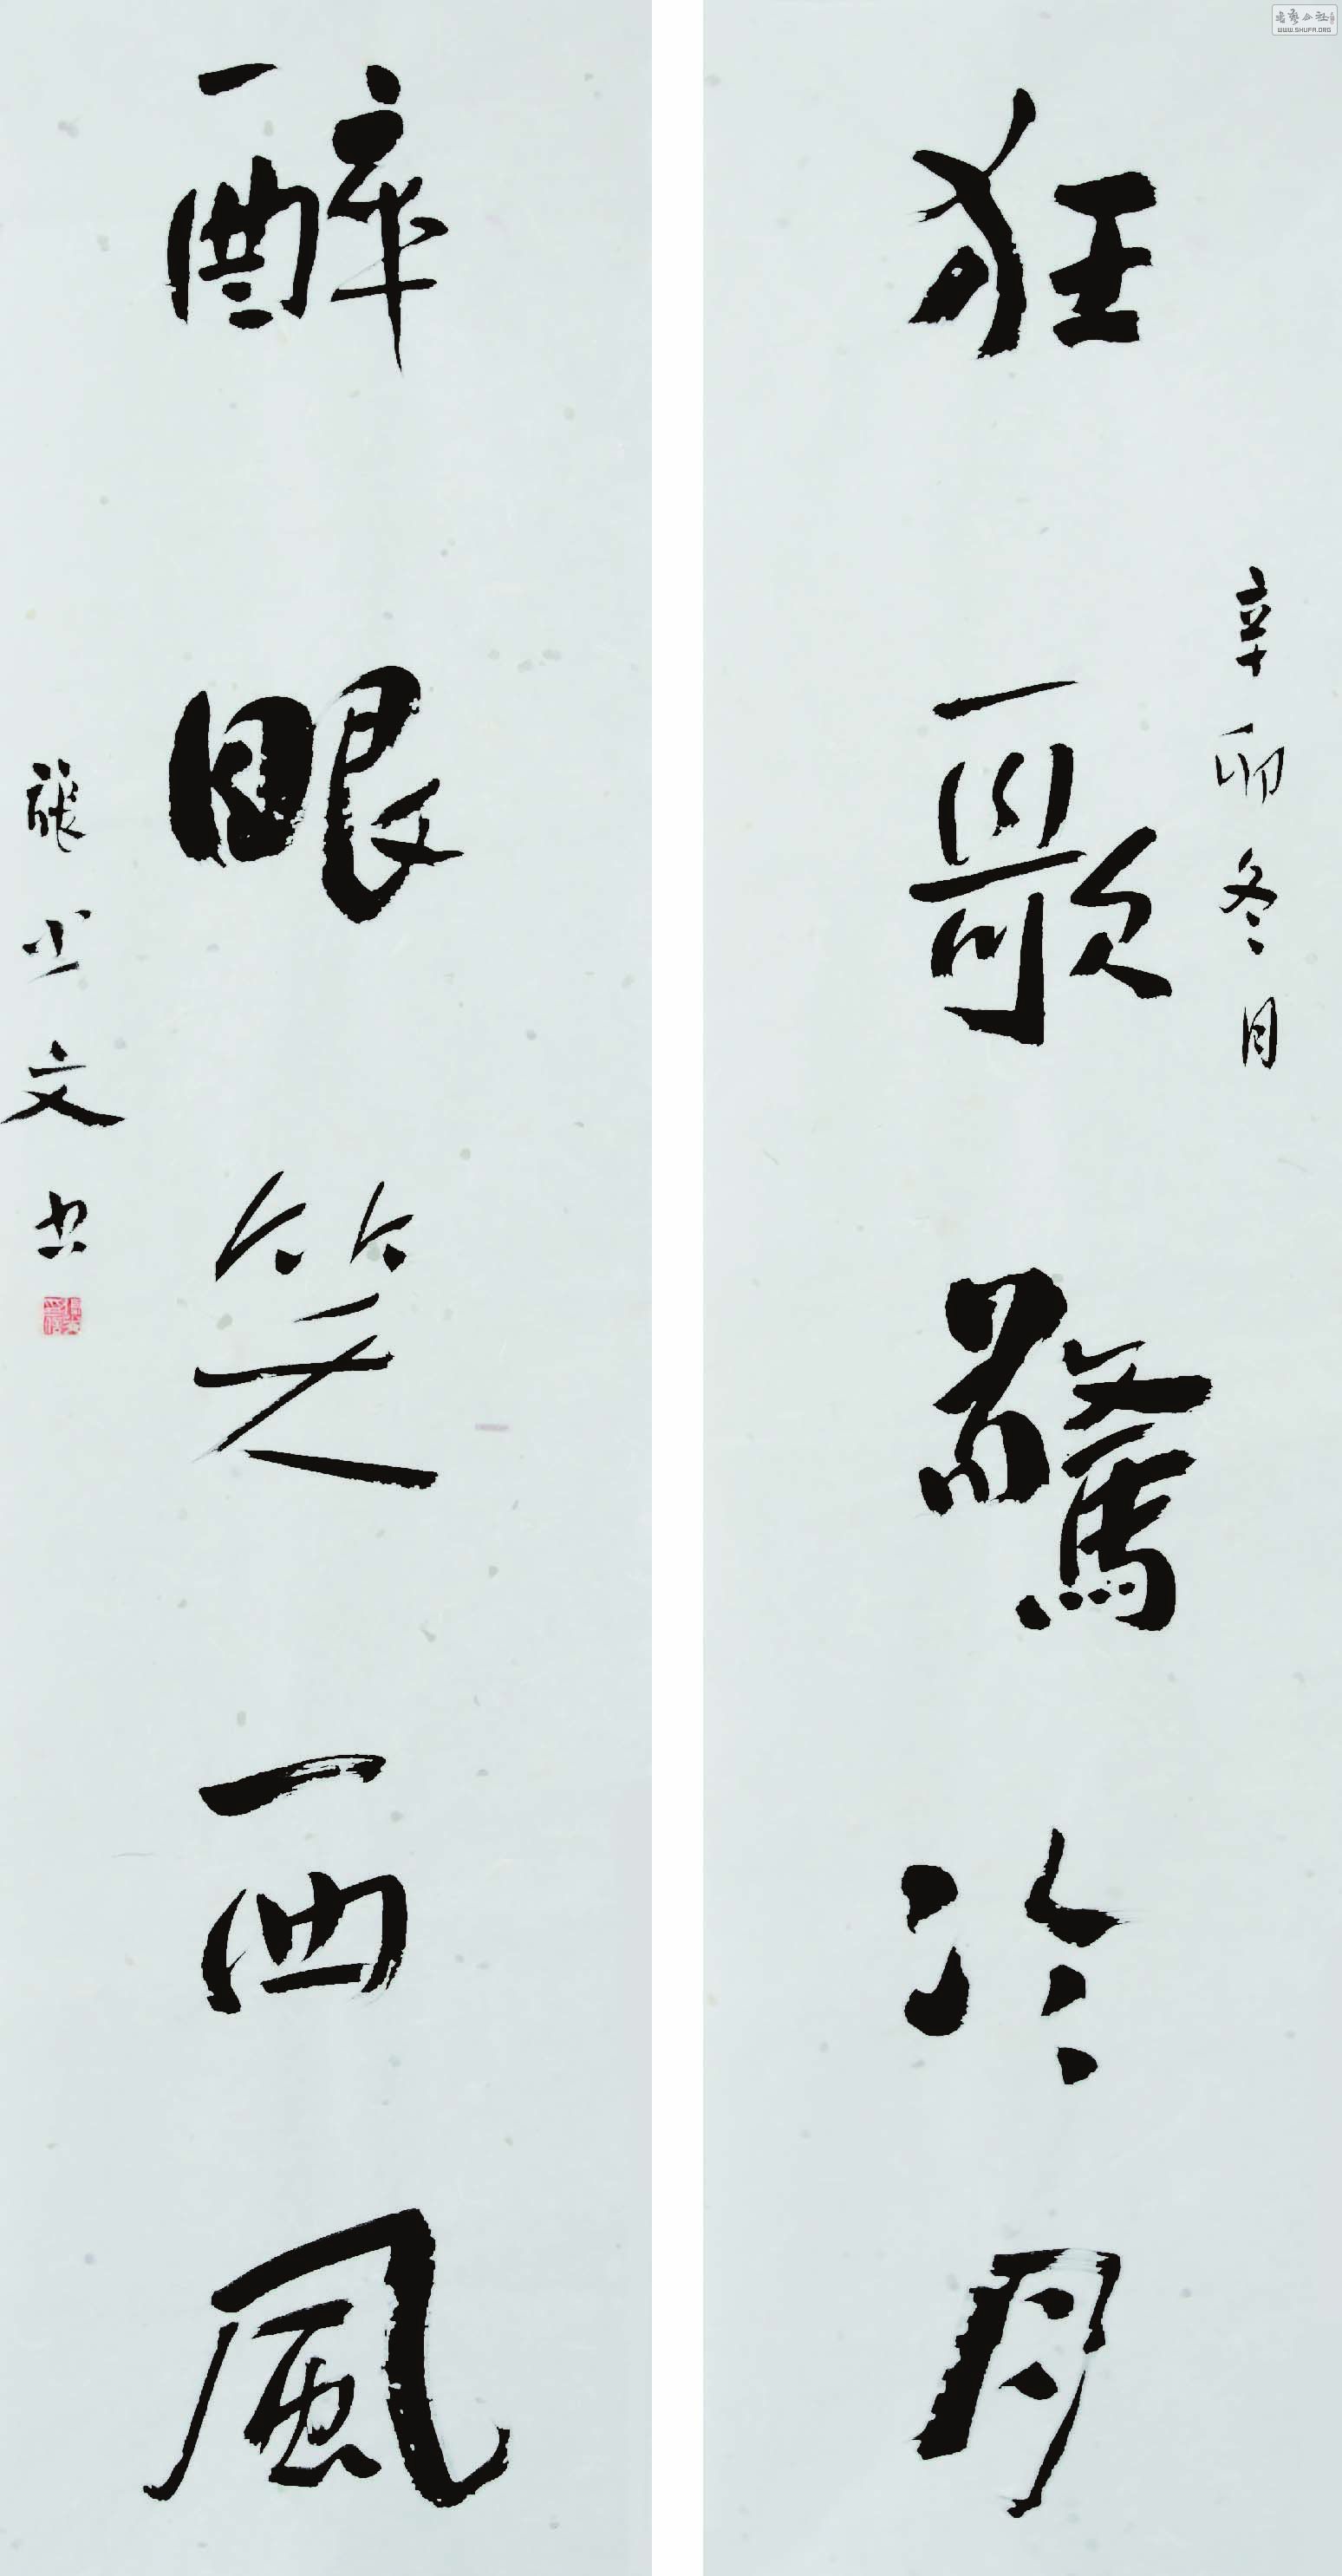 狂歌驚冷月
辛卯冬月
醉眼笑西風
張光文書
WWW.SHUFA.ORG